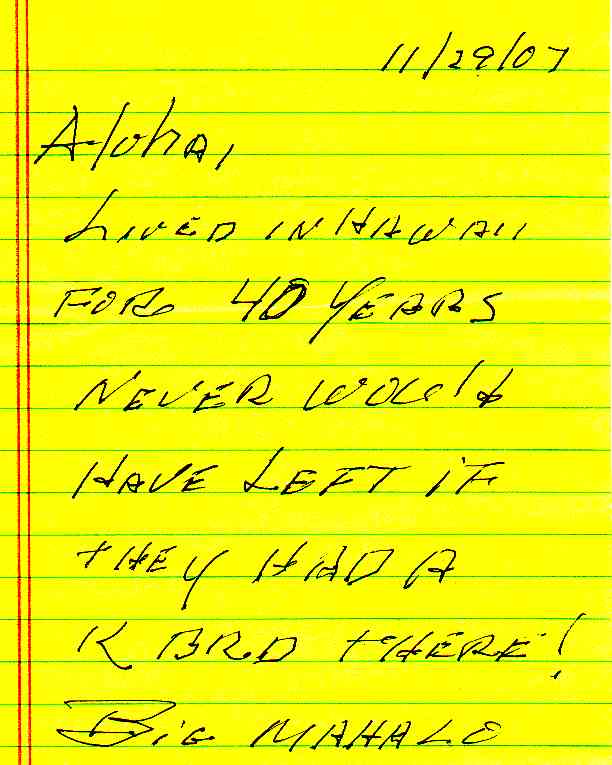 11/29/07
Aloha,
LIVED IN HAWAII
FOR 40 YEARS
NEVER WOULD
HAVE LEFT IF
THEY HAD A
K BRD THERE!
BIG MAHALO